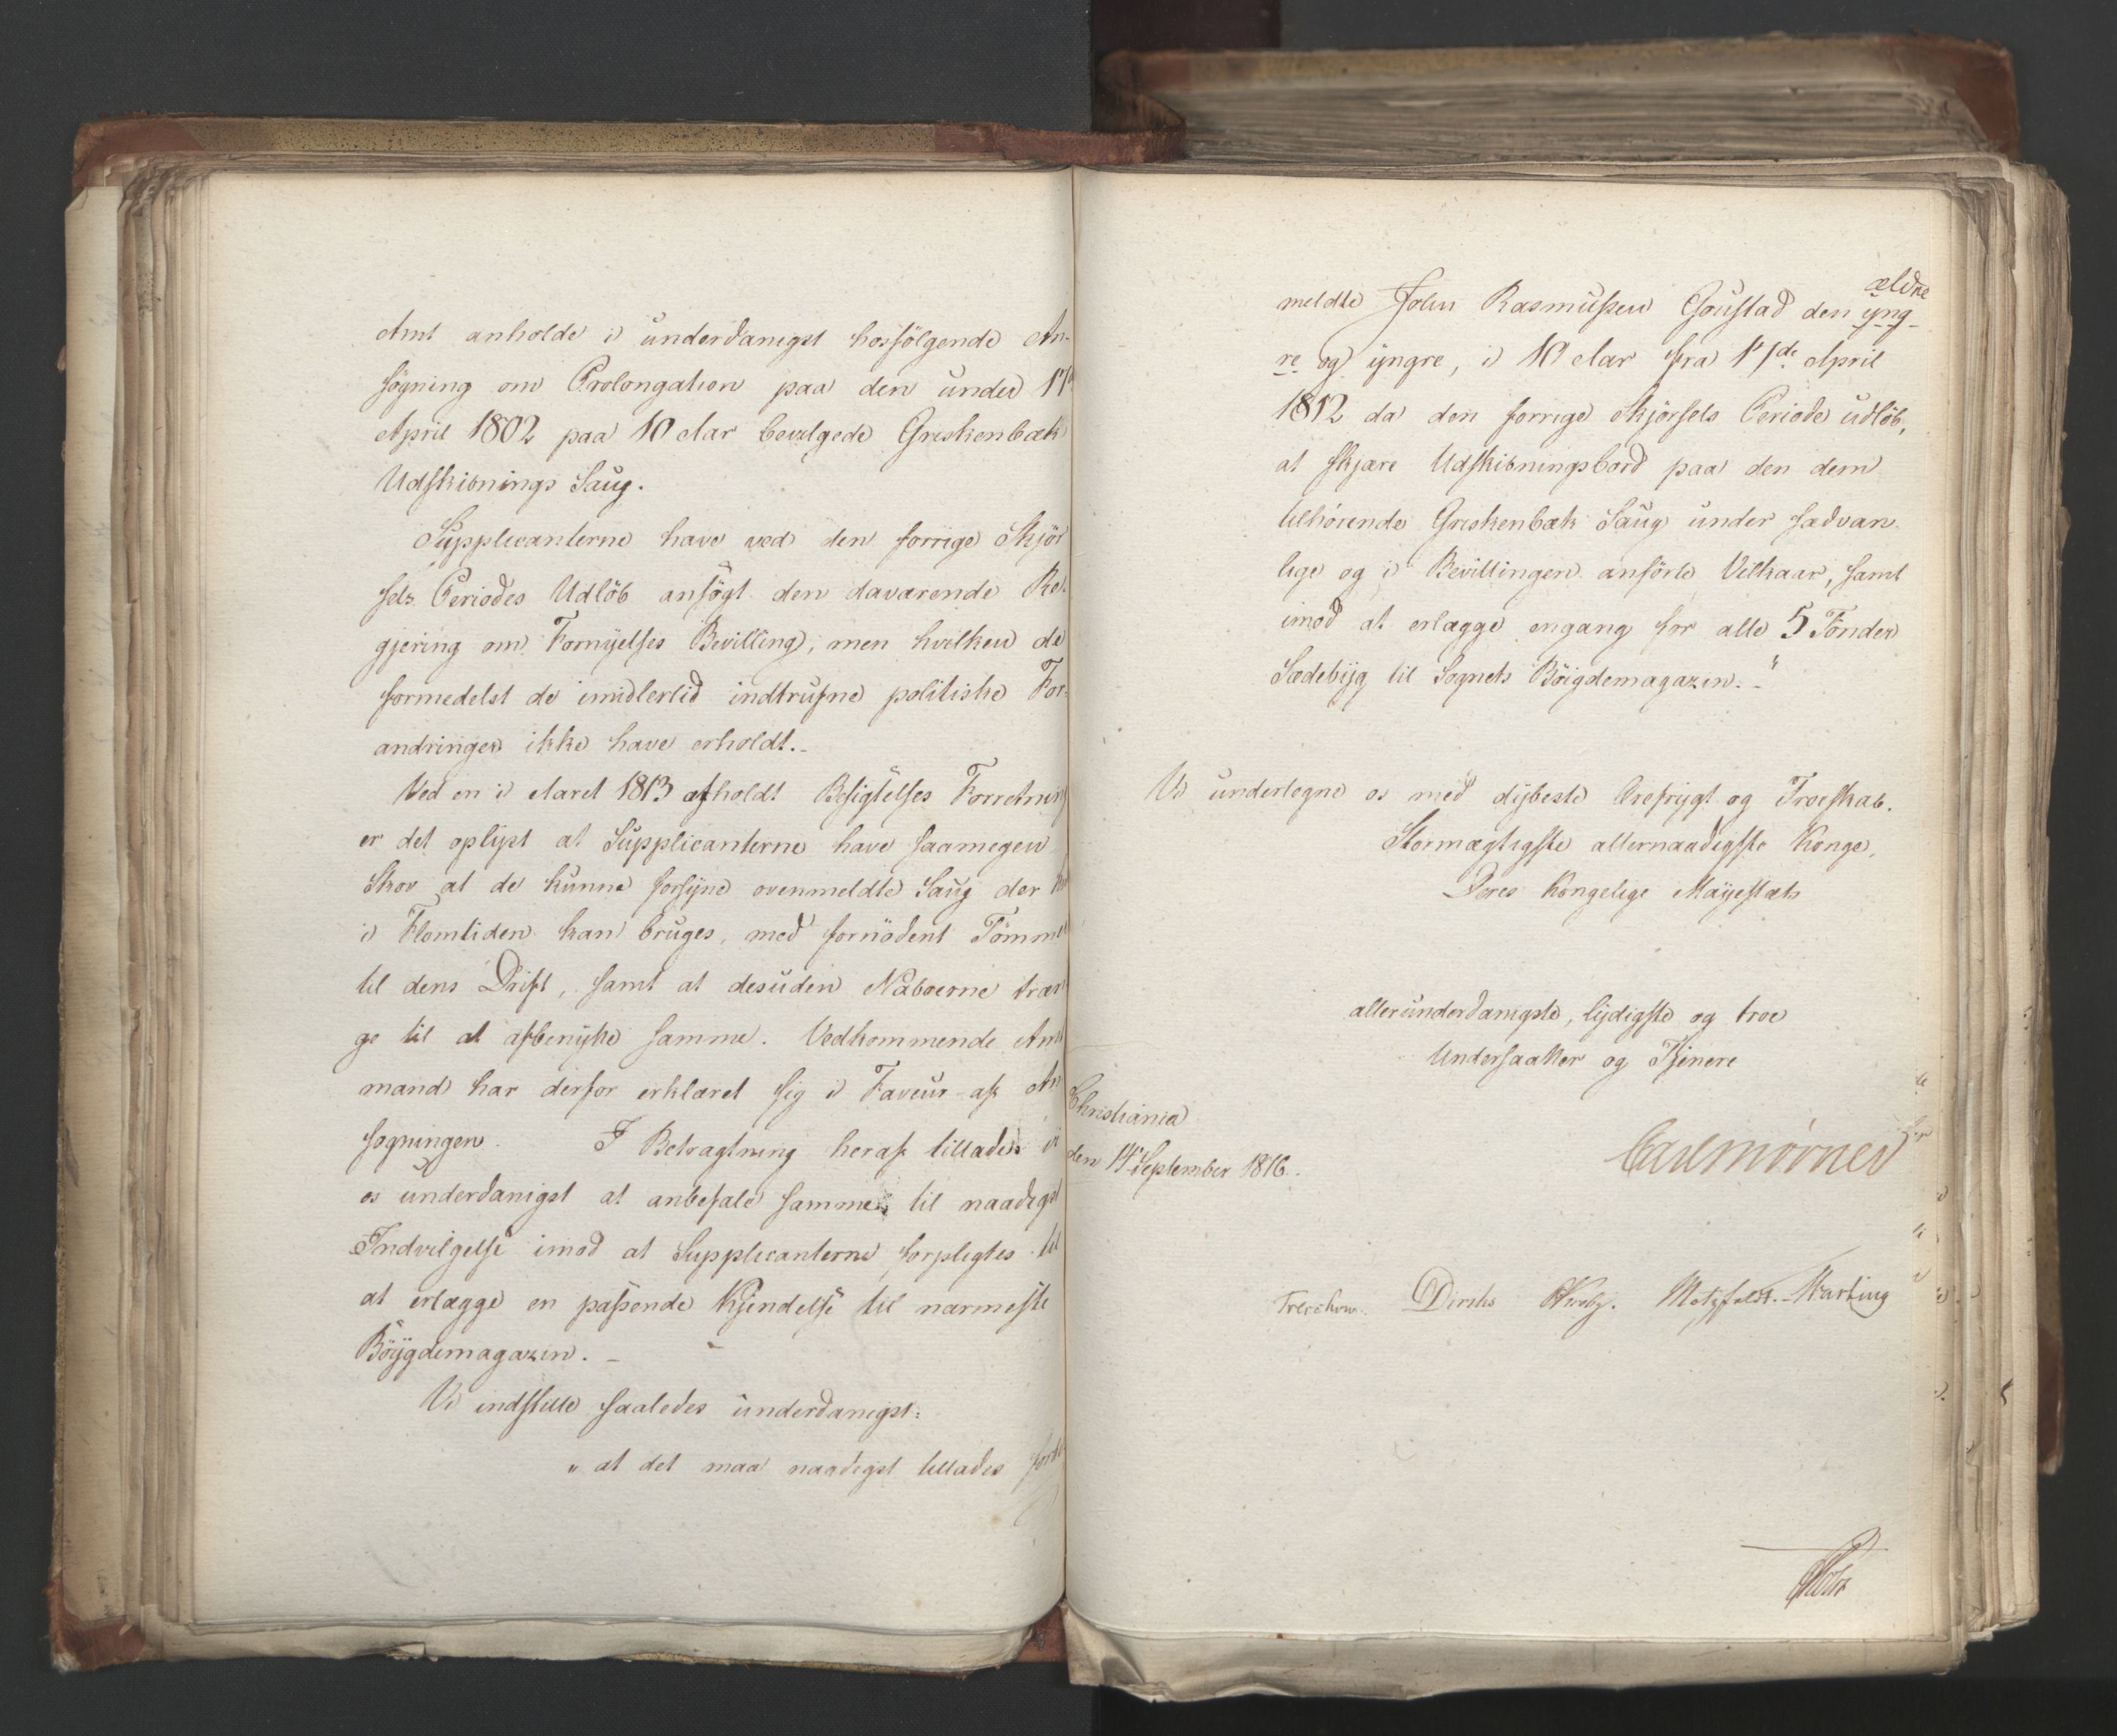 Amt anholde i underdanigst hosfölgende An-
søgning om Prolongation paa den under 1ste
April 1802 paa 10 Aar bevilgede Griskenbæk
Udskibnings Saug.
Supplicanterne have ved den forrige Skjör
sels Periodes Udlöb ansögt den daværende Re-
gjering om Fornyelses Bevilling, men hvilken de
formedelst de imidlertid indtrufne politiske For-
andringer ikke have erholdt.-
Ved en i Aaret 1813 afholdt Besigtelses Forretning
er det oplyst at Supplicanterne have saamegen
Skov at de kunne forsyne ovenmeldte Saug der kun
i Flomtiden kan bruges, med fornödent Tömmer
til dens Drift, samt at desuden Naboerne træn
ge til at afbenytte samme. Vedkommende Amt
mand har derfor erklæret sig i Faveur af An
sögningen. I Betragtning heraf tillade vi
os underdanigst at anbefale samme til naadigst
Indvilgelse imod at Supplicanterne forpligtes til
at erlægge en passende Kjendelse til nærmeste
Böygdemagazin. -
Vi indstille saaledes underdanigst:
" at det maa naadigst tillades for-
ældre
meldte John Rasmussen Goustad den yng-
re og yngre, i 10 Aar fra 1ste April
1812 da den forrige Skjörsels Periode udlöb,
at skjære Udskibningsbord paa den dem
tilhörende Griskenbæk Saug under sædvan-
lige og i Bevillingen anförte Vilkaar, samt
imod at erlægge engang for alle 5 Tönder
Sædebyg til Sognets Böigdemagazin.-"
Vi undertegne os med dybeste Ærefrygt og Troeskab.
Stormægtigste allernaadigste Konge,
Deres Kongelige Mayestæts
allerunderdanigste, lydigste og troe
Undersaatter og Tjenere
Christiania
den 14 September 1816.
Carl Mörner
Treschow. Diriks Krebs. Motzfeldt.